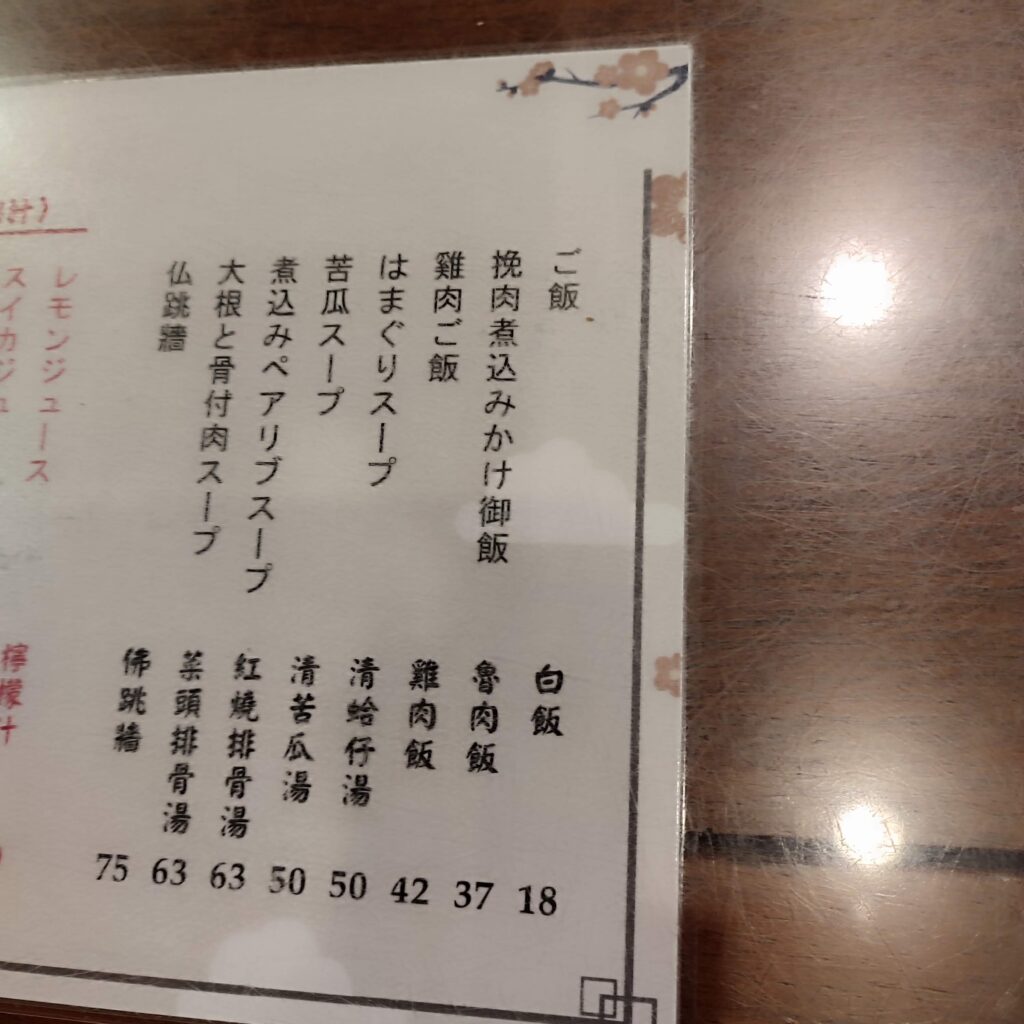 ご飯
挽肉煮込みかけ御飯
雞肉ご飯
はまぐりスープ
苦瓜スープ
煮込みペアリブスープ
大根と骨付肉スープ
仏跳牆
白飯
魯肉飯
雞肉飯
清蛤仔湯
清苦瓜湯
紅燒排骨湯
菜頭排骨湯
佛跳牆
18
37
42
50
50
63
63
75
汁）
レモンジュース
スイカジュ
檸檬汁